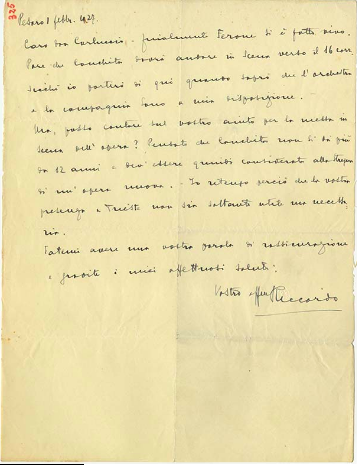 325
Pesaro 8 febbr. 1929.
Caro don Carluccio, finalmente Ferone si è fatto vivo.
Pare che Conchita dovrà andare in scena verso il 16 corr.
sicchè io partirò di qui quando saprò che l'orchestra
e la compagnia sono a mia disposizione.
Ma, posso contare sul vostro aiuto per la messa in
scena dell'opera? Pensate che Conchita non si dà più
da 12 anni e dev'essere quindi considerata alla stregua
di un'opera nuova. - Io ritengo perciò che la vostra
presenza a Trieste non sia soltanto utile ma neces-
saria.
Fatemi avere una vostra parola di rassicurazione
e gradite i miei affettuosi saluti.
Vostro aff. Riccardo